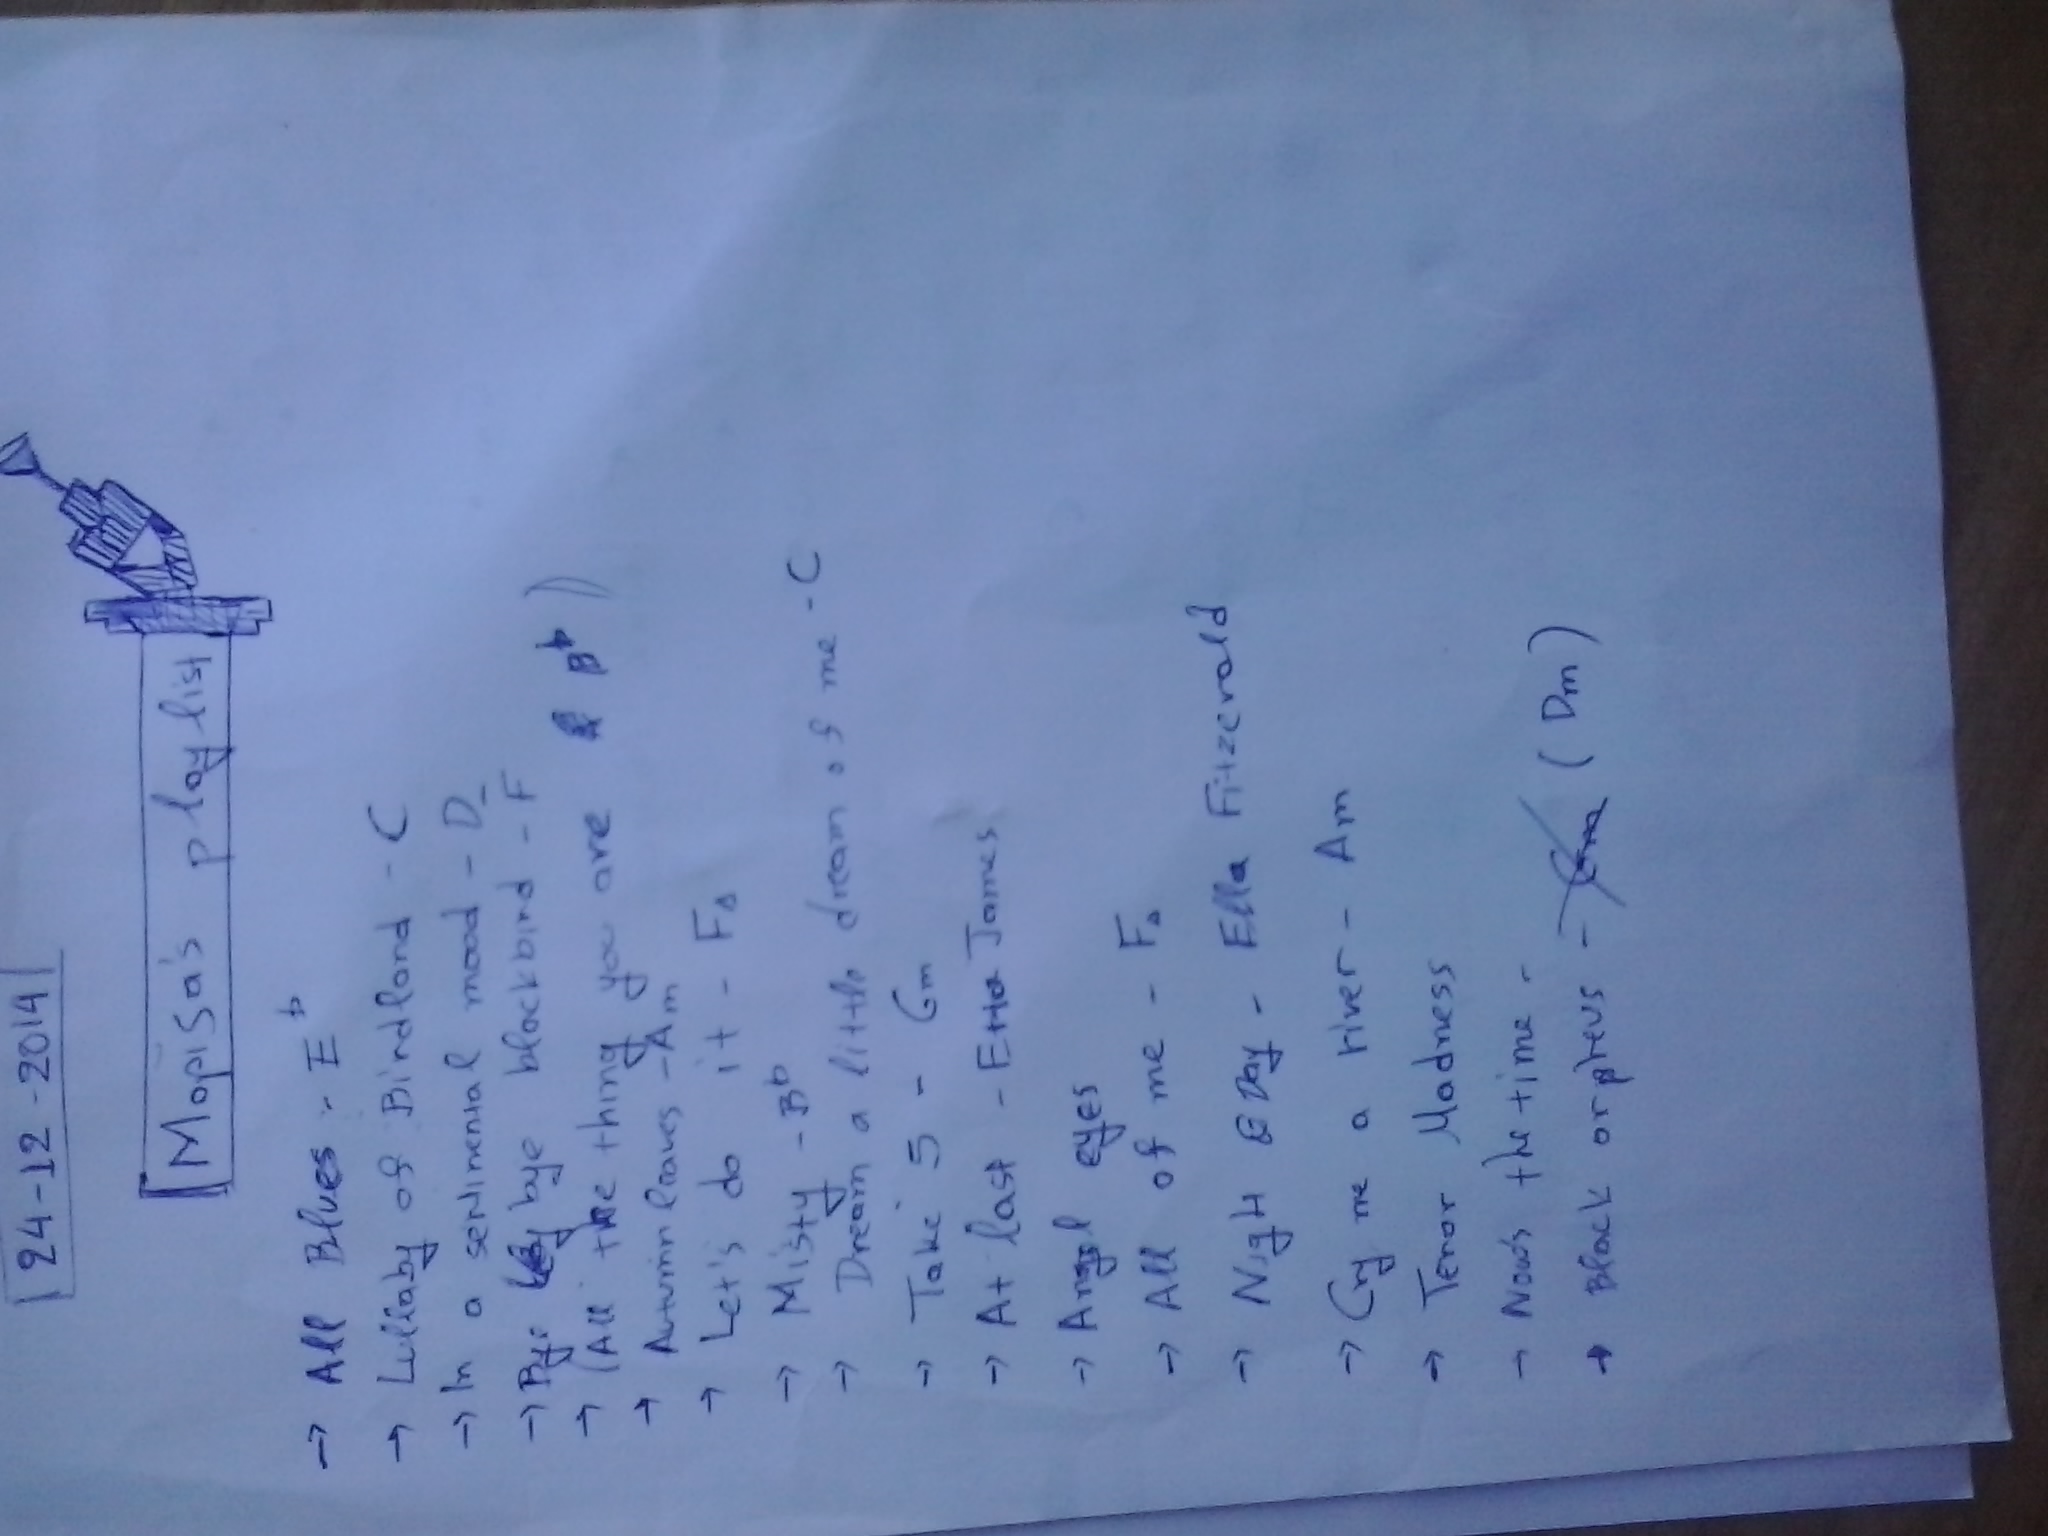 24-12-2014
Mopisa's playlist
→ All Blues - E♭
→ Lullaby of Birdland - C
→ In a sentimental mood - D_
→ Bye bye blackbird - F
→ (All the thing you are B♭)
→ Autumn leaves - Am
→ Let's do it - F△
→ Misty - B♭
→ Dream a little dream of me - C
→ Take 5 - Gm
→ At last - Etta James
→ Angel eyes
→ All of me - F△
→ Night & Day - Ella Fitzerald
→ Cry me a river - Am
→ Tenor Madness
→ Now's the time -
→ Black orpheus - Gm (Dm)